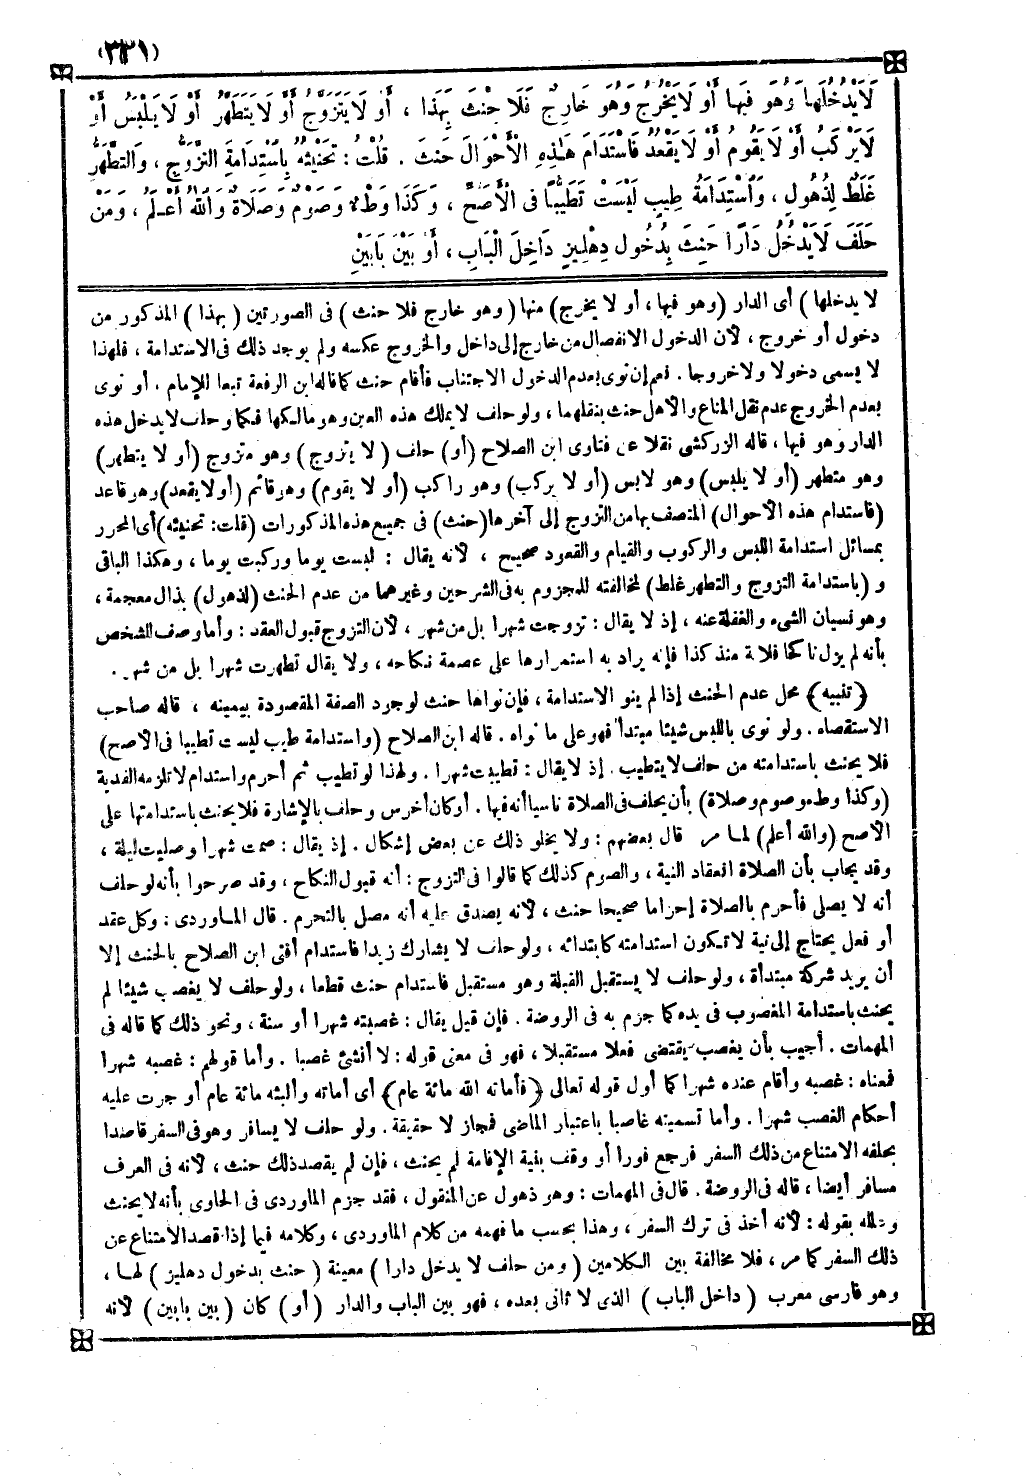 (٣٣١)
لَا يَدْخُلُهَا وَهُوَ فِيهَا أَوْ لَا يَخْرُجُ وَهُوَ خَارِجٌ فَلَا حِنْثَ بِهَذَا ، أَوْ لَا يَتَزَوَّجُ أَوْ لَا يَتَطَهَّرُ أَوْ لَا يَلْبَسُ أَوْ
لَا يَرْكَبُ أَوْ لَا يَقُومُ أَوْ لَا يَقْعُدُ فَاسْتَدَامَ هَذِهِ الْأَحْوَالَ حَنِثَ . قُلْتُ : تَحْنِيثُهُ بِاسْتِدَامَةِ التَّزَوُّجِ ، وَالتَّطَهُّرِ
غَلَطٌ لِذُهُولٍ ، وَاسْتِدَامَةُ طِيبٍ لَيْسَتْ تَطَيُّبًا فِى الْأَصَحِّ ، وَكَذَا وَطْءٌ وَصَوْمٌ وَصَلَاةٌ وَاللهُ أَعْلَمُ ، وَمَنْ
حَلَفَ لَا يَدْخُلُ دَارًا حَنِثَ بِدُخُولِ دِهْلِيزٍ دَاخِلَ الْبَابِ ، أَوْ بَيْنَ بَابَيْنِ
لا يدخلها ) أى الدار (وهو فيها ، أو لا يخرج) منها (وهو خارج فلا حنث) فى الصورتين (بهذا) المذكور من
دخول أو خروج ، لأن الدخول الانفصال من خارج إلى داخل والخروج عكسه ولم يوجد ذلك فى الاستدامة ، فلهذا
لا يسمى دخولا ولا خروجا . نعم إن نوى بعدم الدخول الاجتناب فأقام حنث كما قاله ابن الرفعة تبعا للإمام . أو نوى
بعدم الخروج عدم نقل المتاع والأهل حنث بنقلهما ، ولو حلف لا يملك هذه العين وهو مالكها فكما لو حلف لا يدخل هذه
الدار وهو فيها ، قاله الزركشى نقلا عن فتاوى ابن الصلاح (أو) حلف (لا يتزوج) وهو متزوج (أو لا يتطهر)
وهو متطهر (أو لا يلبس) وهو لابس (أو لا يركب) وهو راكب (أو لا يقوم) وهو قائم (أو لا يقعد) وهو قاعد
(فاستدام هذه الأحوال) المتصف بها من التزوج إلى آخرها (حنث) فى جميع هذه المذكورات (قلت : تحنيثه) أى المحرر
بمسائل استدامة اللبس والركوب والقيام والقعود صحيح ، لأنه يقال : لبست يوما وركبت يوما ، وهكذا الباقى
و (باستدامة التزوج والتطهر غلط) لمخالفته للمجزوم به فى الشرحين وغيرهما من عدم الحنث (لذهول) بذال معجمة ،
وهو نسيان الشىء والغفلة عنه ، إذ لا يقال : تزوجت شهرا بل من شهر ، لأن التزوج قبول العقد : وأما وصف الشخص
بأنه لم يزل ناكحا فلانة منذ كذا فإنه يراد به استمرارها على عصمة نكاحه ، ولا يقال تطهرت شهرا بل من شهر .
(تنبيه) محل عدم الحنث إذا لم ينو الاستدامة ، فإن نواها حنث لوجود الصفة المقصودة بيمينه ، قاله صاحب
الاستقصاء . ولو نوى باللبس شيئا مبتدأ فهو على ما نواه . قاله ابن الصلاح (واستدامة طيب ليست تطيبا فى الأصح)
فلا يحنث باستدامته من حلف لا يتطيب . إذ لا يقال : تطيبت شهرا . ولهذا لو تطيب ثم أحرم واستدام لا تلزمه الفدية
(وكذا وطء وصوم وصلاة) بأن يحلف فى الصلاة ناسيا أنه فيها . أو كان أخرس وحلف بالإشارة فلا يحنث باستدامتها على
الأصح (والله أعلم) لما مر قال بعضهم : ولا يخلو ذلك عن بعض إشكال . إذ يقال : صمت شهرا وصليت ليلة ،
وقد يجاب بأن الصلاة انعقاد النية ، والصوم كذلك كما قالوا فى التزوج : أنه قبول النكاح ، وقد صرحوا بأنه لو حلف
أنه لا يصلى فأحرم بالصلاة إحراما صحيحا حنث ، لأنه يصدق عليه أنه مصل بالتحرم . قال الماوردى : وكل عقد
أو فعل يحتاج إلى نية لا تكون استدامته كابتدائه ، ولو حلف لا يشارك زيدا فاستدام أفتى ابن الصلاح بالحنث إلا
أن يريد شركة مبتدأة ، ولو حلف لا يستقبل القبلة وهو مستقبل فاستدام حنث قطعا ، ولو حلف لا يغصب شيئا لم
يحنث باستدامة المغصوب فى يده كما جزم به فى الروضة . فإن قيل يقال : غصبته شهرا أو سنة ، ونحو ذلك كما قاله فى
المهمات . أجيب بأن يغصب يقتضى فعلا مستقبلا ، فهو فى معنى قوله : لا أنشئ غصبا . وأما قولهم : غصبه شهرا
فمعناه : غصبه وأقام عنده شهرا كما أول قوله تعالى (فأماته الله مائة عام) أى أماته وألبثه مائة عام أو جرت عليه
أحكام الغصب شهرا . وأما تسميته غاصبا باعتبار الماضى فمجاز لا حقيقة . ولو حلف لا يسافر وهو فى السفر قاصدا
بحلفه الامتناع من ذلك السفر فرجع فورا أو وقف بنية الإقامة لم يحنث ، فإن لم يقصد ذلك حنث ، لأنه فى العرف
مسافر أيضا ، قاله فى الروضة . قال فى المهمات : وهو ذهول عن المنقول ، فقد جزم الماوردى فى الحاوى بأنه لا يحنث
وعلله بقوله : لأنه أخذ فى ترك السفر ، وهذا بحسب ما فهمه من كلام الماوردى ، وكلامه فيما إذا قصد الامتناع عن
ذلك السفر كما مر ، فلا مخالفة بين الكلامين (ومن حلف لا يدخل دارا) معينة (حنث بدخول دهليز) لها ،
وهو فارسى معرب (داخل الباب) الذى لا ثانى بعده ، فهو بين الباب والدار (أو) كان (بين بابين) لأنه